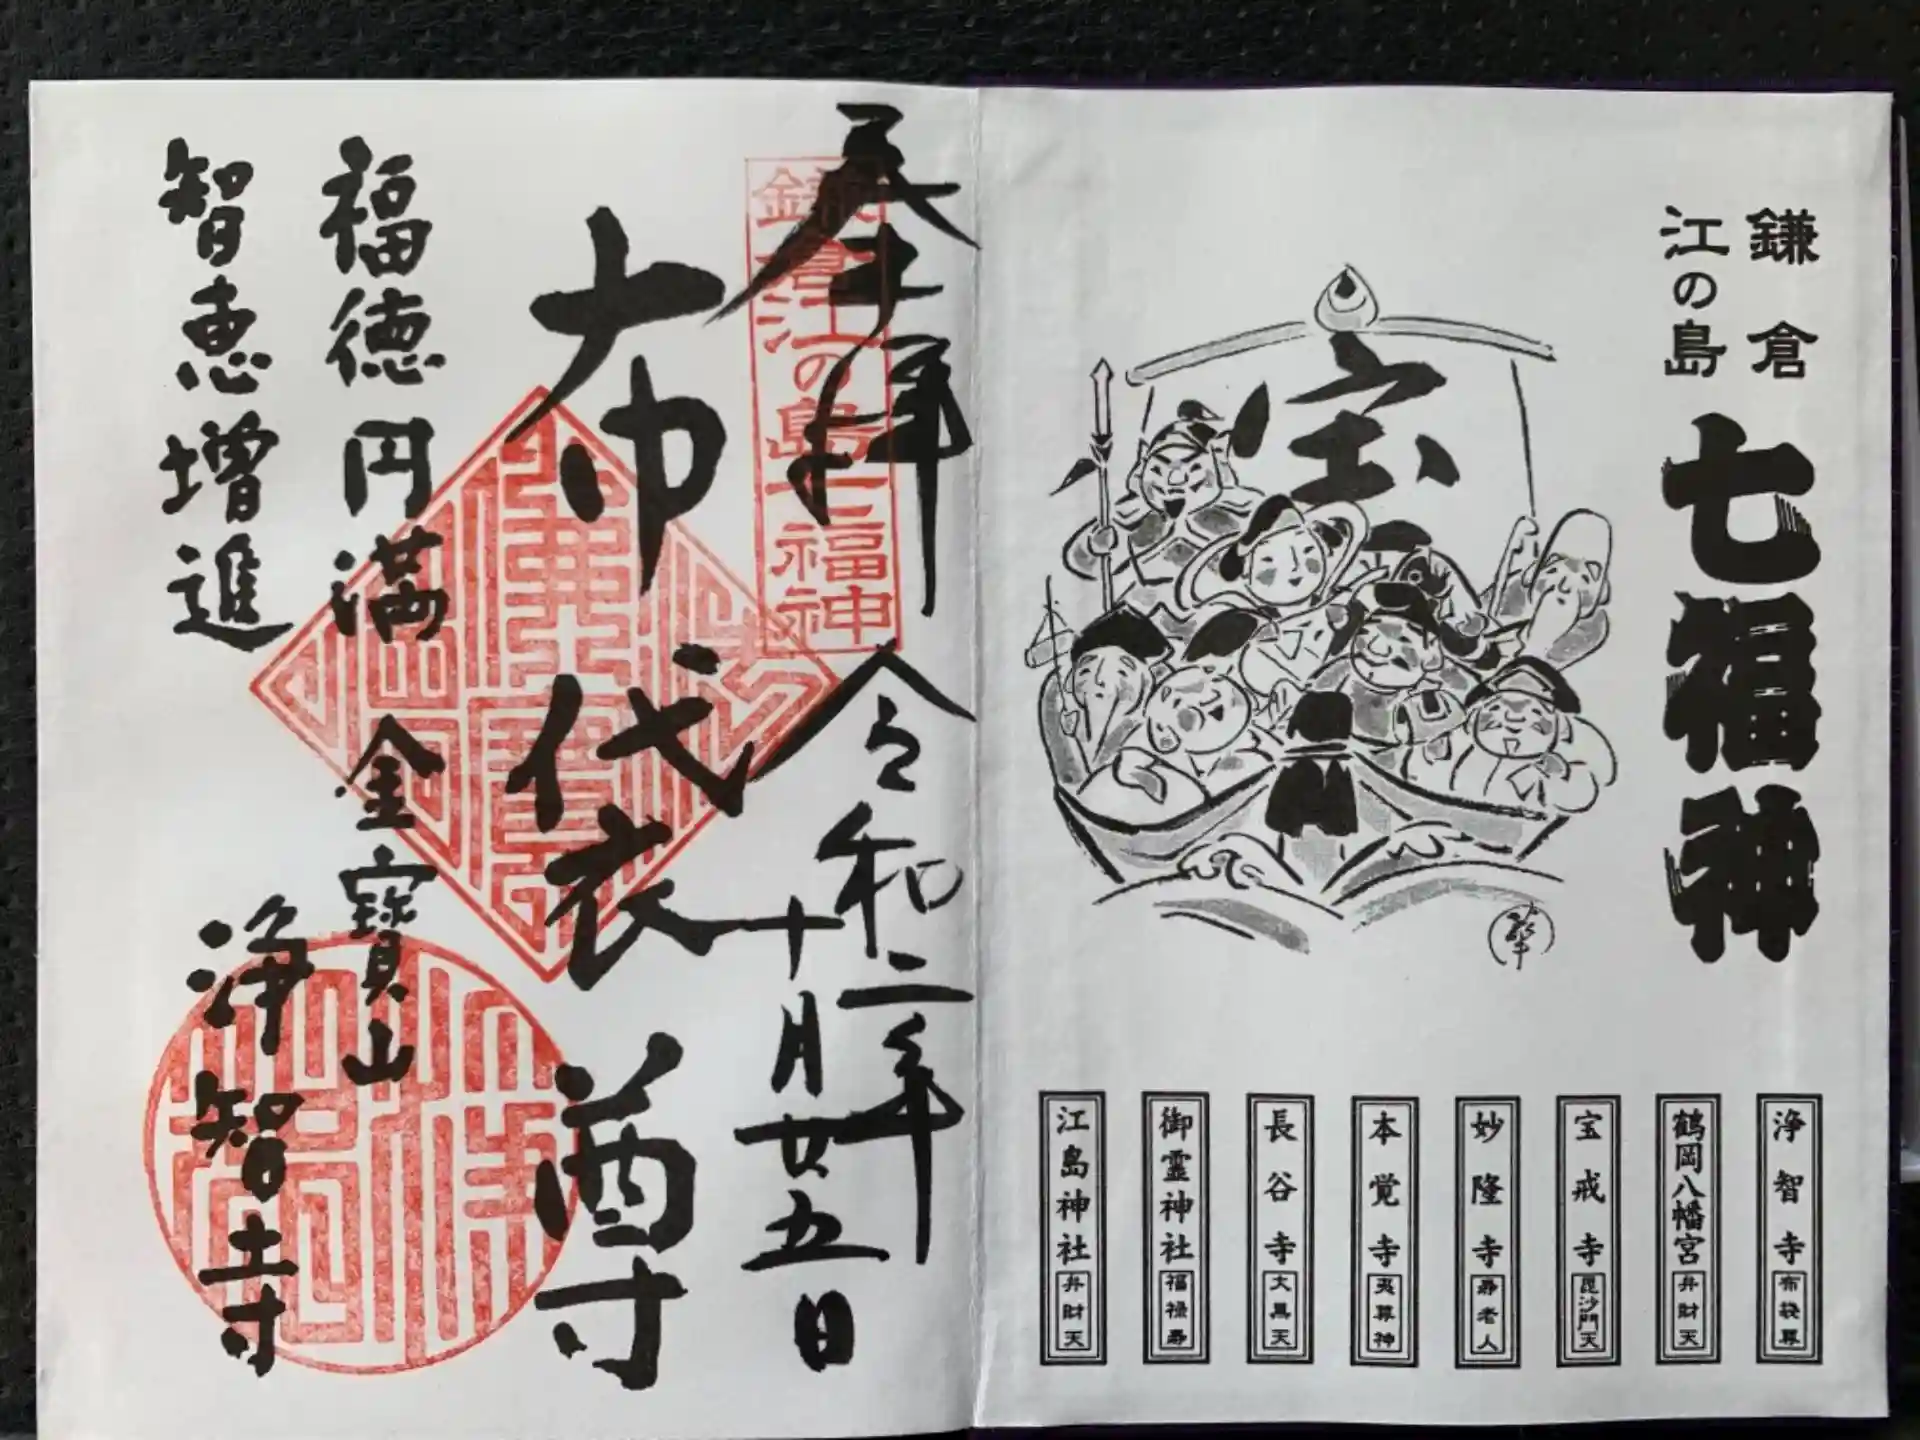 鎌倉
江の島
七福神
宝
浄智寺 布袋尊
鶴岡八幡宮 弁財天
宝戒寺 毘沙門天
妙隆寺 寿老人
本覚寺 夷尊神
長谷寺 大黒天
御霊神社 福禄寿
江島神社 弁財天
奉拝
令和二年
十月廿五日
鎌倉江の島七福神
布袋尊
福徳円満
智恵増進
金寳山
浄智寺